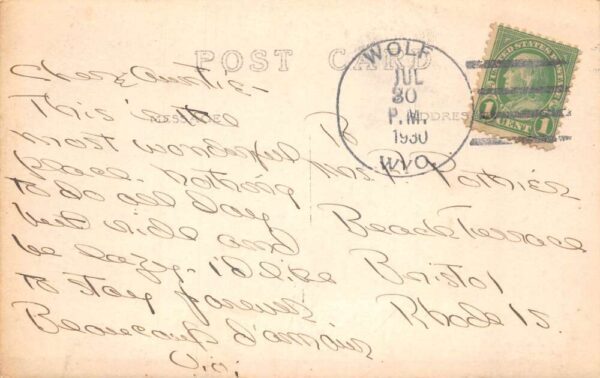 POST CARD
WOLF
JUL
30
P.M.
1930
WYO.
UNITED STATES
1 1
CENT
MESSAGE
ADDRESS
Cherz Auntie -
This is the
most wonderful
place. nothing
to do all day
but ride and
be lazy. i'd like
to stay forever
Beaucoup d'amour
To
Mrs. R. Pothier
Beach Terrace
Bristol
Rhode Is.